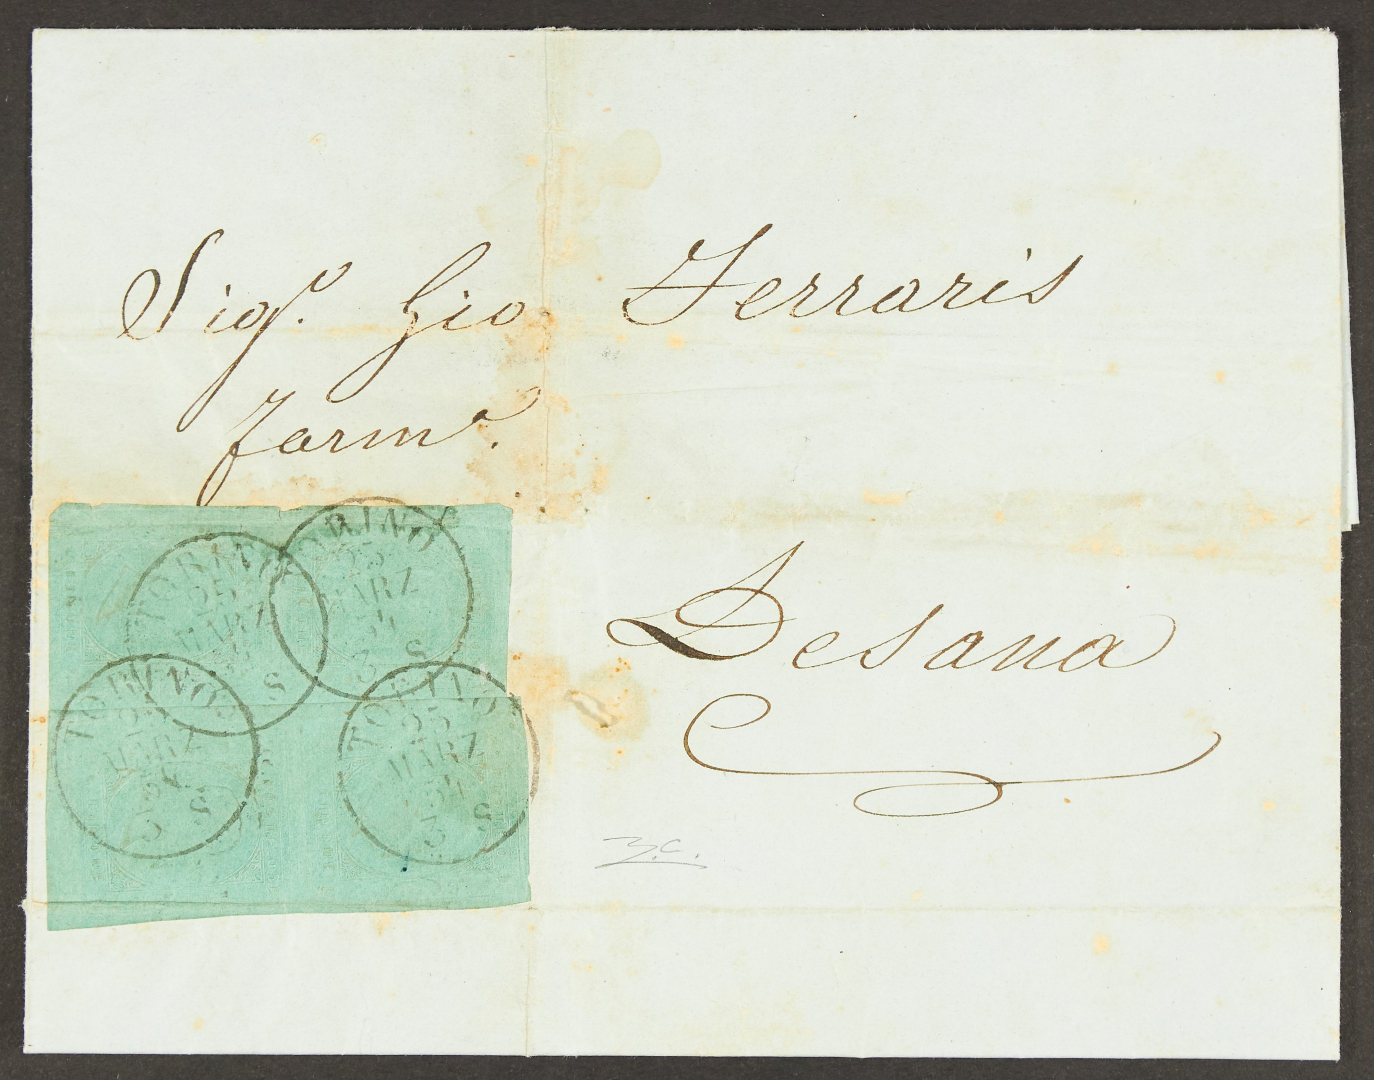 Sigr. Gio. Ferraris
farmo.
Desana
TORINO
25
MARZ
54
3 S
TORINO
25
MARZ
54
S
TORINO
25
MARZ
54
3 S
TORINO
25
MARZ
54
3 S